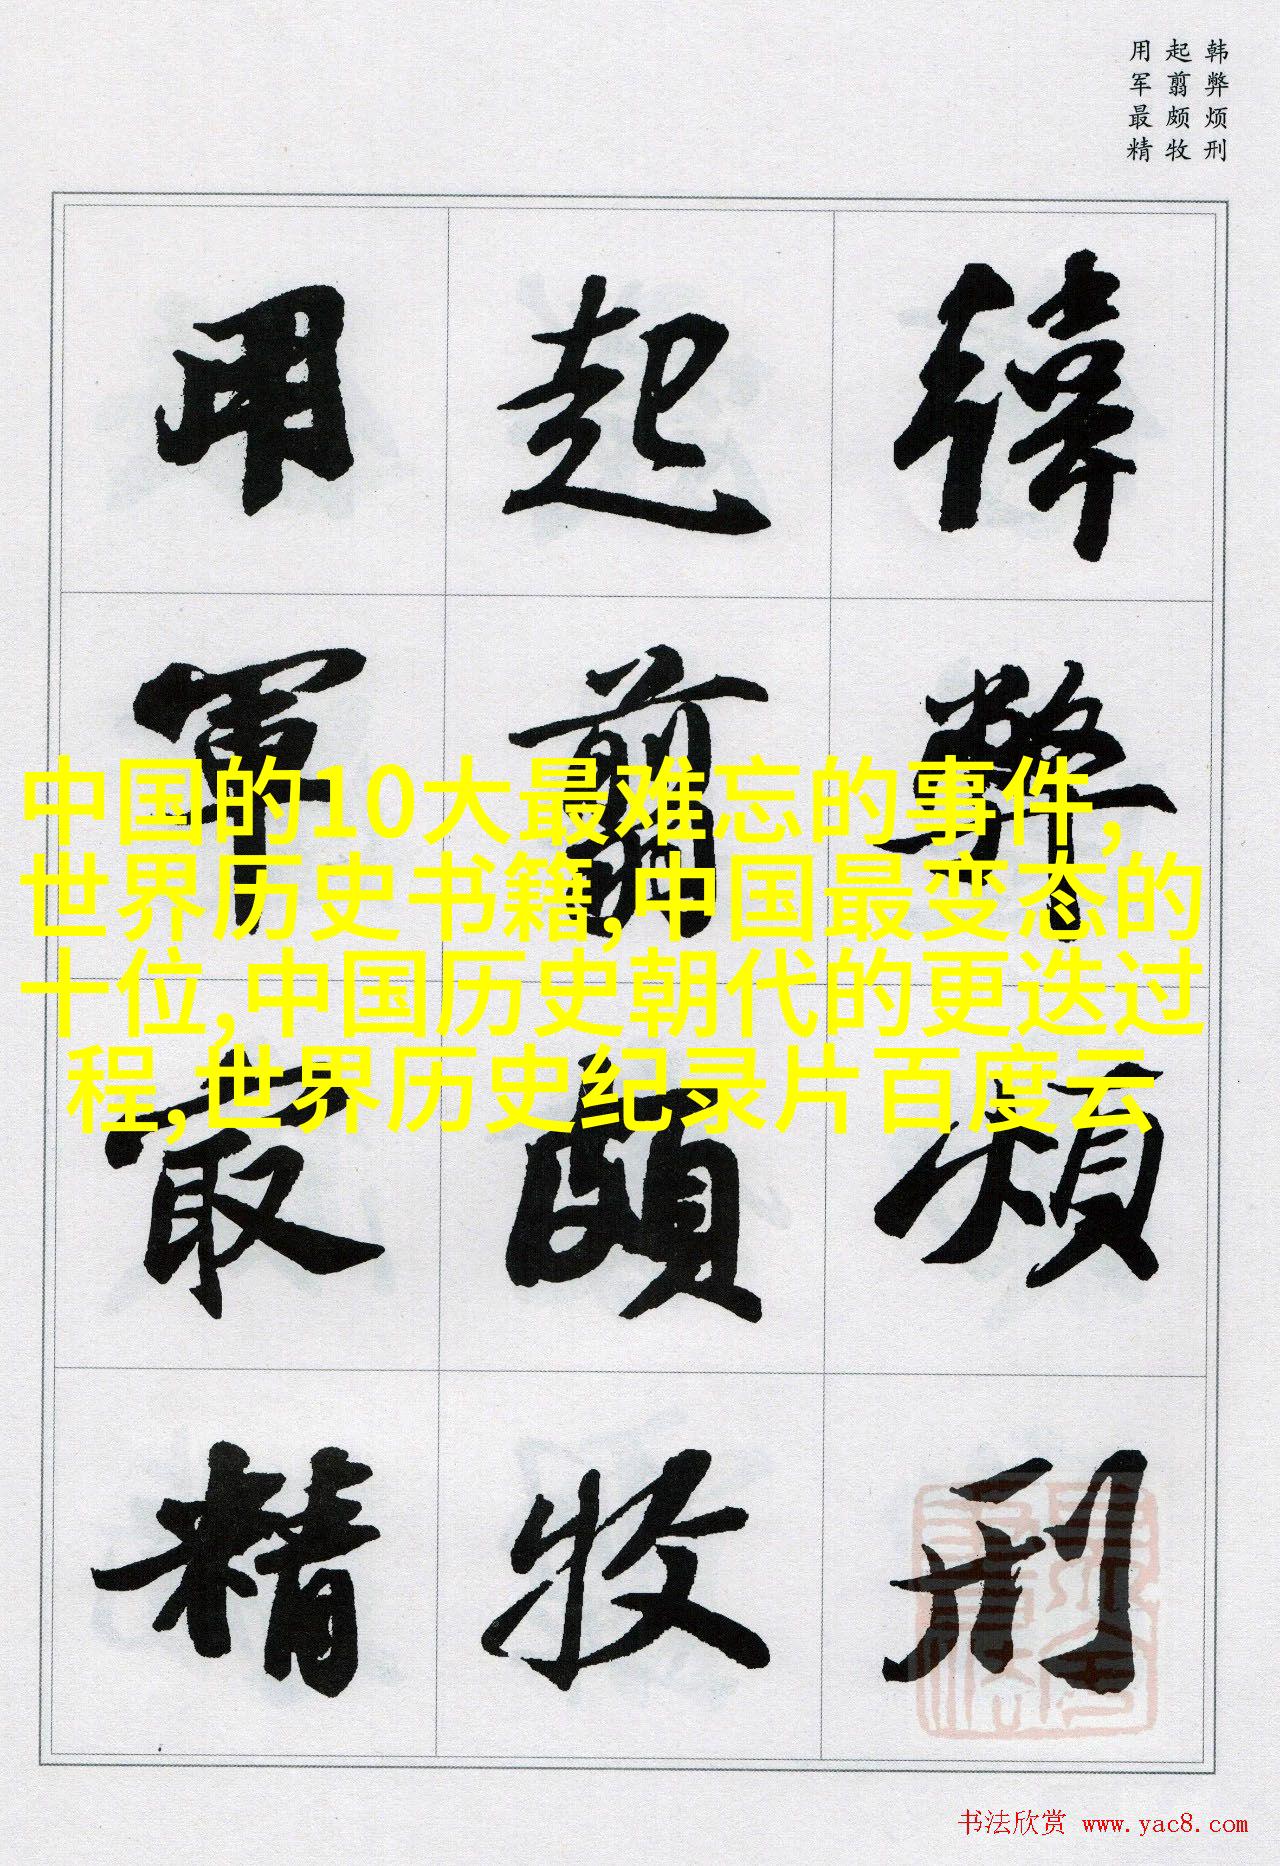 韩弊烦刑
起翦颇牧
用军最精
韓弊煩刑
起翦頗牧
用軍最精
中国的10大最难忘的事件,
世界历史书籍,中国最变态的
十位,中国历史朝代的更迭过
程,世界历史纪录片百度云
书法欣赏 www.yac8.com